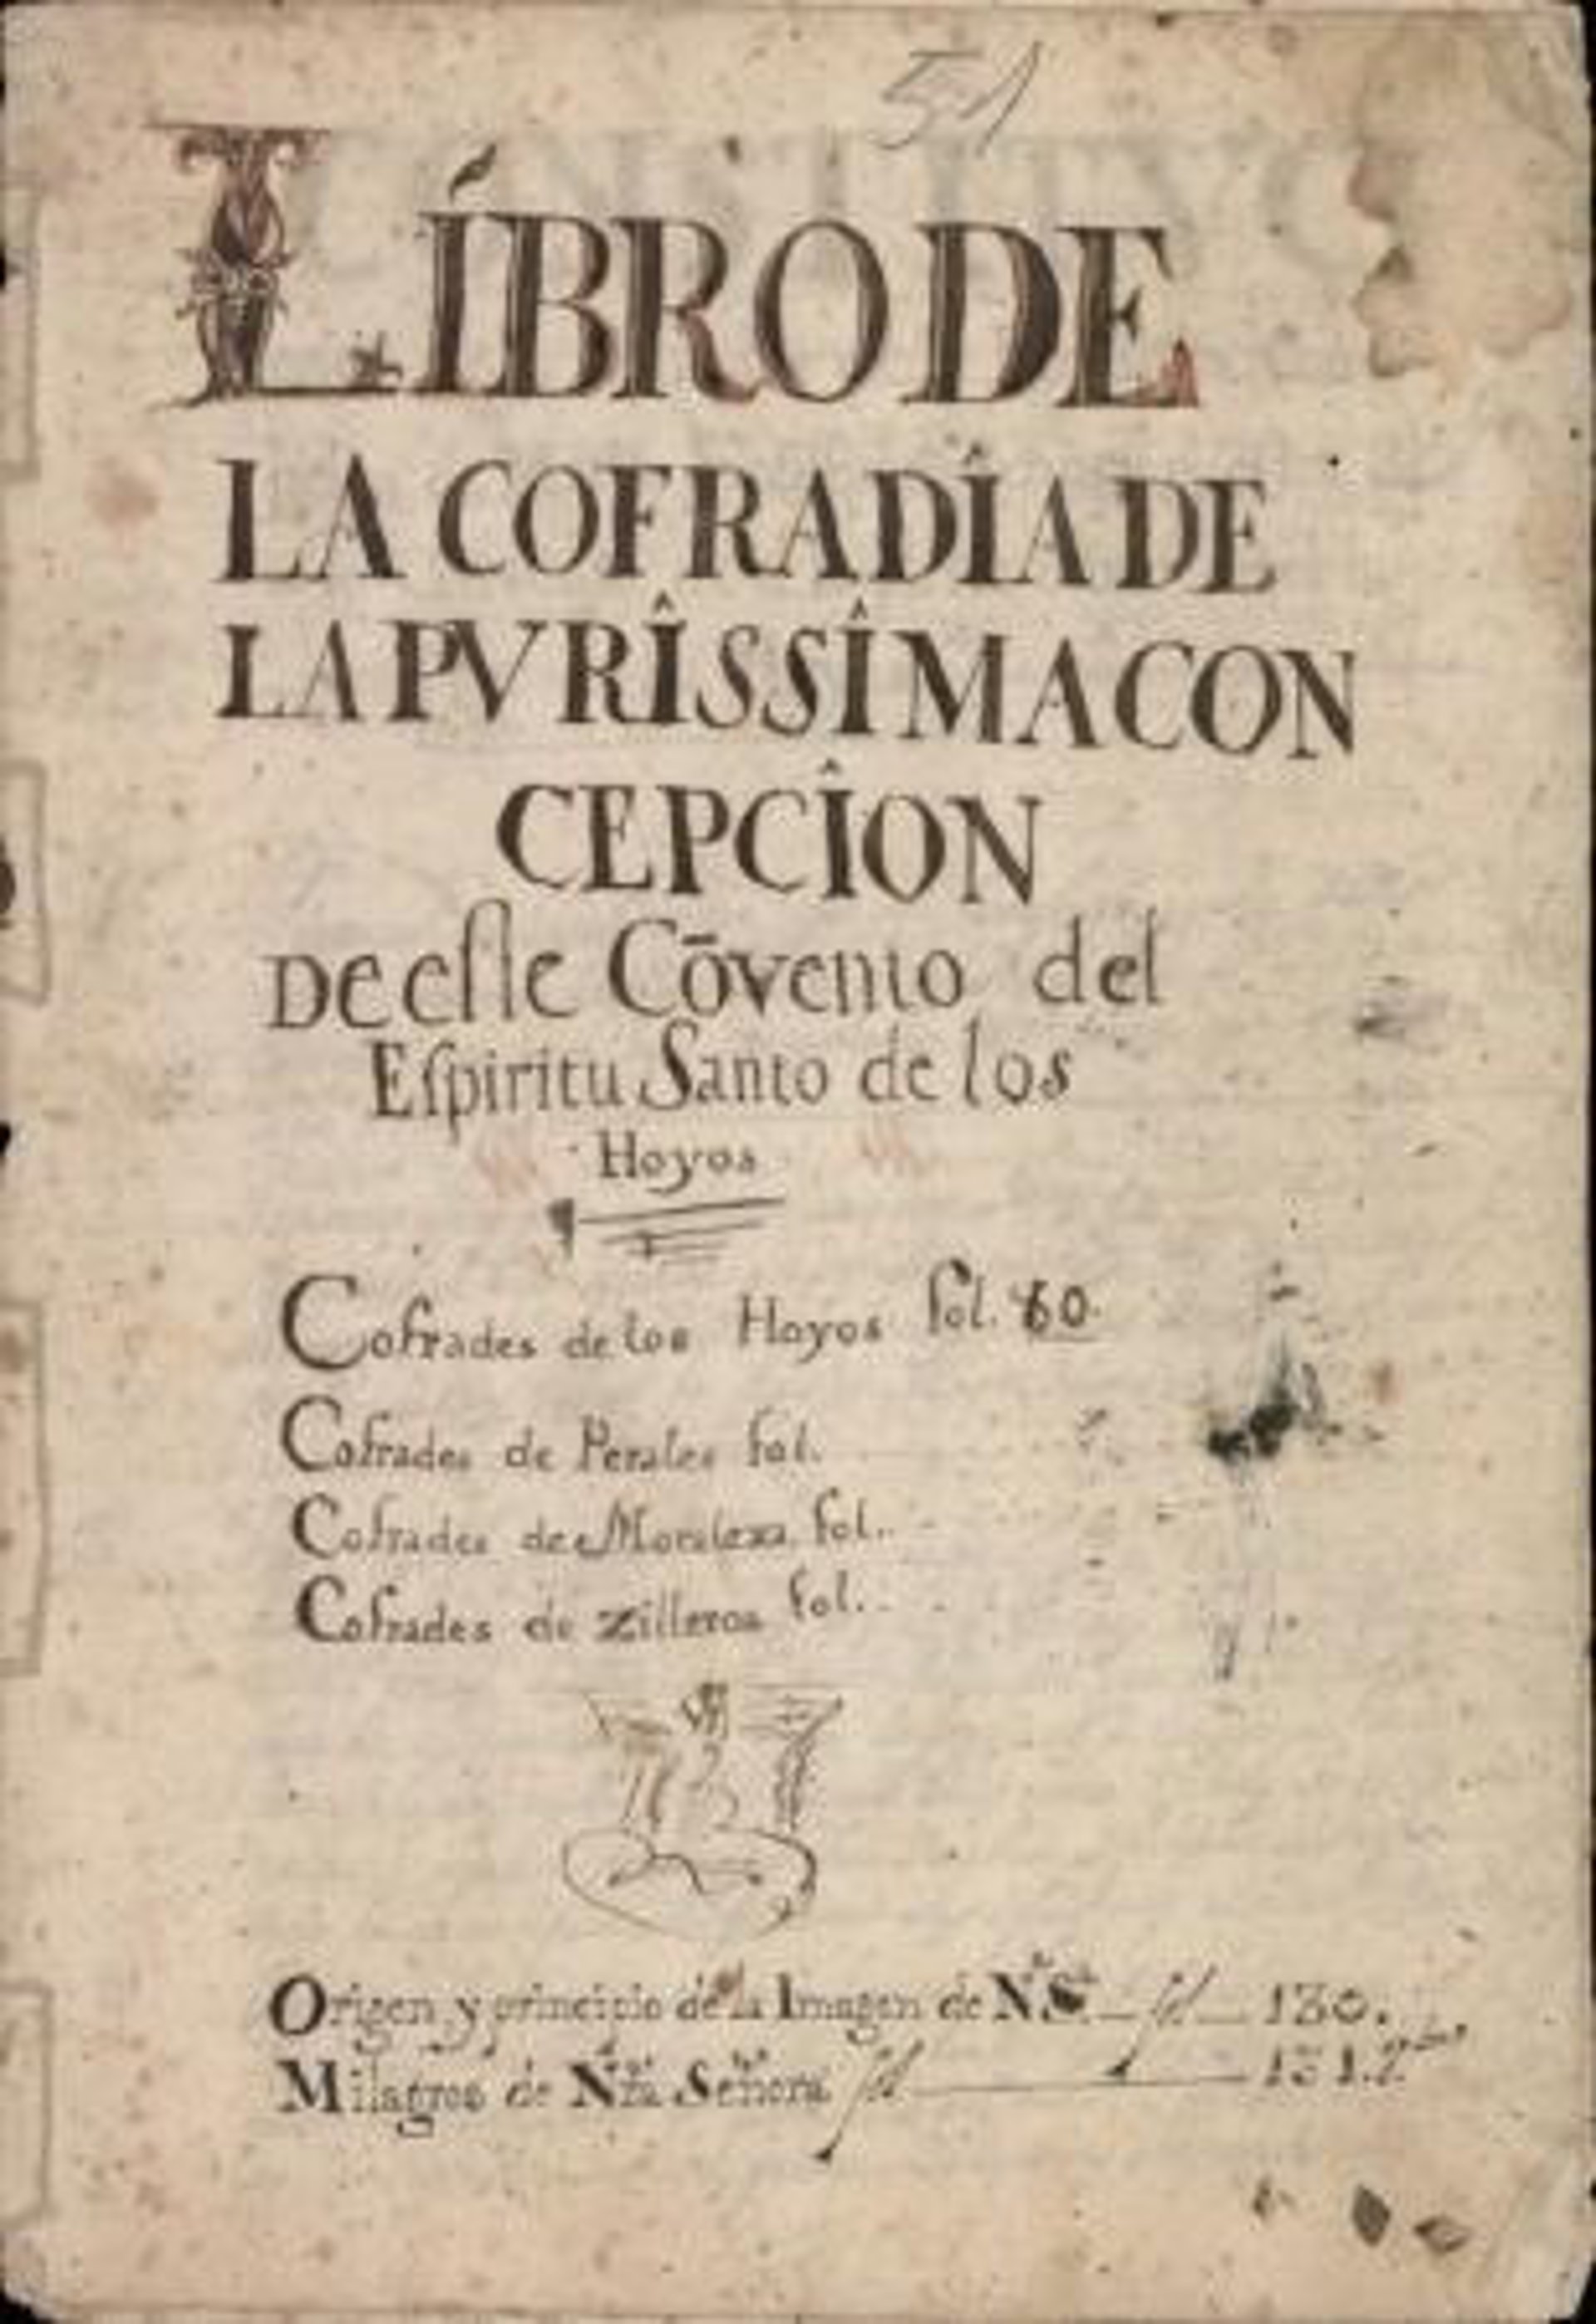 51
LÍBRO DE
LA COFRADÎA DE
LA PVRÎSSÎMA CON
CEPCÎON
De este Cōvento del
Eſpiritu Santo de los
Hoyos
Cofrades de los Hoyos fol. 60.
Cofrades de Perales fol.
Cofrades de Moraleza fol..
Cofrades de Zilleros fol..
Origen y principio de la Imagen de N.ª S.ª fol 130.
Milagros de Nr̃a Señora fol 131.